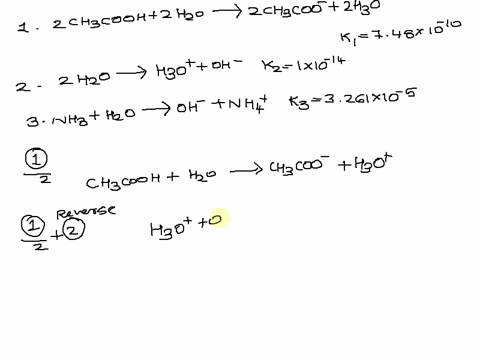 1. 2CH3COOH+2H2O ⟶ 2CH3COO⁻+2H3O
K₁=7.48×10⁻¹⁰
2. 2H2O ⟶ H3O⁺+OH⁻ K₂=1×10⁻¹⁴
3. NH3+H2O ⟶ OH⁻+NH₄⁺ K₃=3.261×10⁻⁵
①/2 CH3COOH + H2O ⟶ CH3COO⁻ + H3O⁺
Reverse
①/2 + ② H3O⁺+O